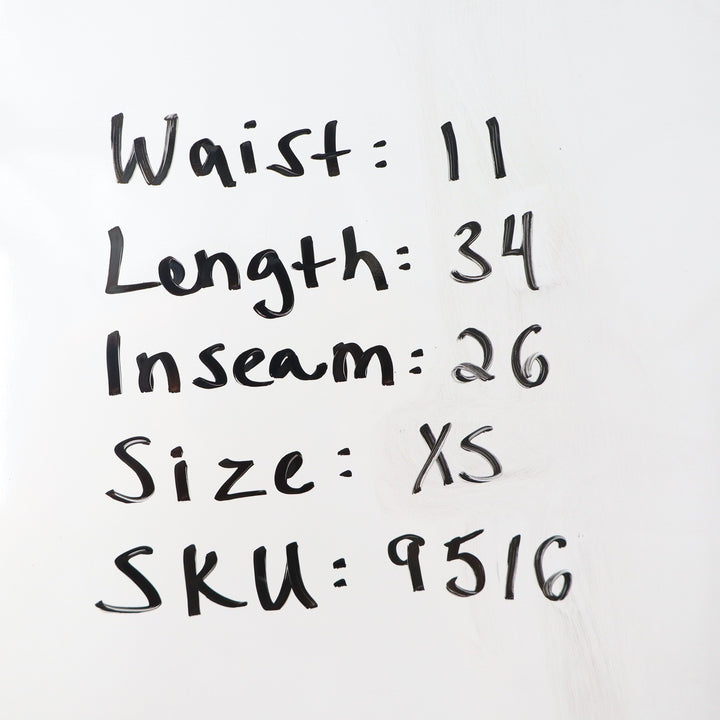 Waist: 11
Length: 34
Inseam: 26
Size: XS
SKU: 9516